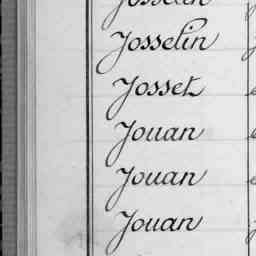 Josselin
Josselin
Josset
Jouan
Jouan
Jouan